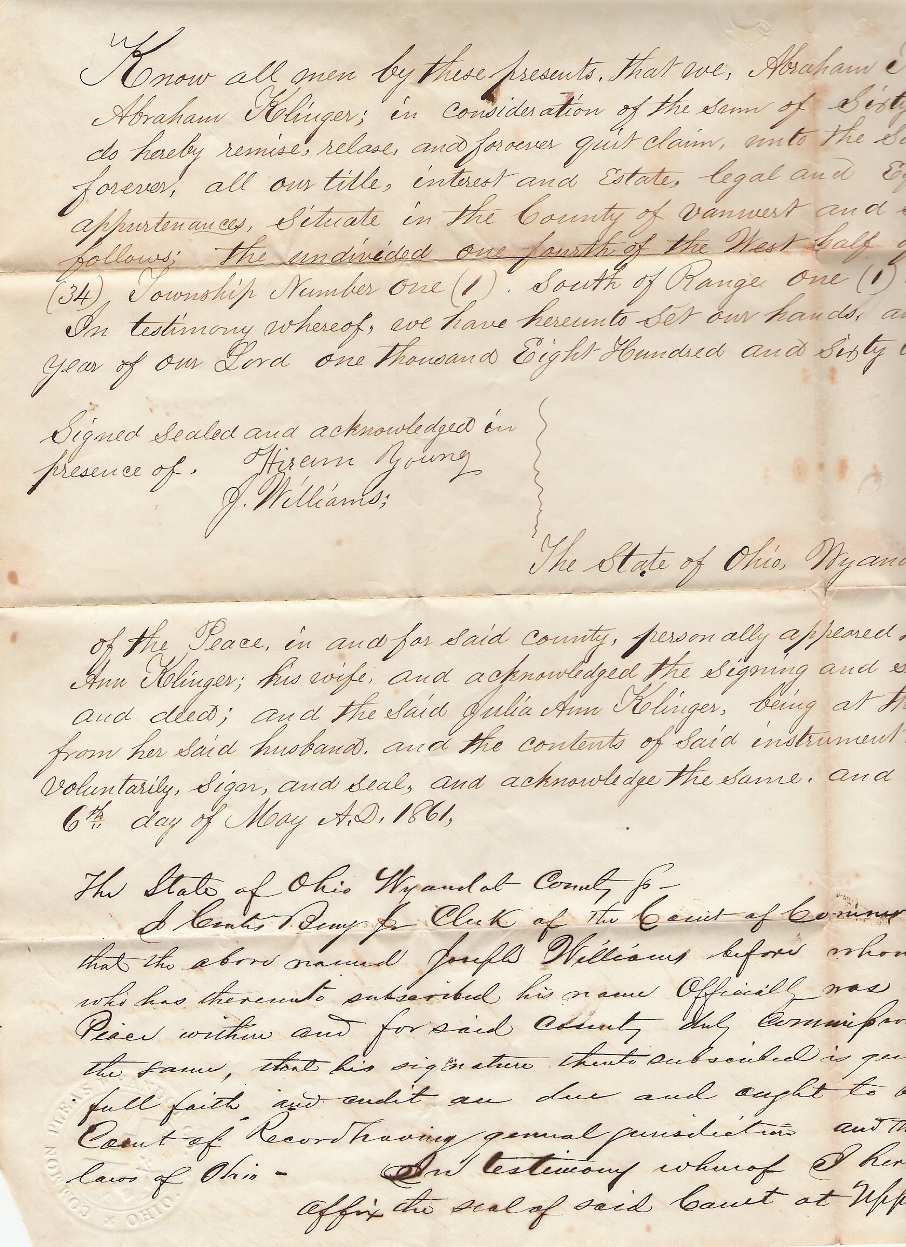 Know all men by these presents, that we, Abraham
Abraham Klinger; in consideration of the sum of Sixty
do hereby remise, relase, and foroever quit claim, unto the
forever, all our title, interest and Estate, legal and
appurtenances, Situate in the County of vanwert and
follows; the undivided one fourth of the West half
(34) Township Number One (1). South of Range One (1)
In testimony whereof, we have hereunto set our hands,
year of our Lord one thousand Eight Hundred and sixty
Signed sealed and acknowledged in
presence of. Hiram Young
J. Williams;
The State of Ohio, Wyan
of the Peace, in and for said county, personally appeared
Ann Klinger; his wife, and acknowledged the signing and
and deed; and the said Julia Ann Klinger, being at
from her said husband. and the contents of said instrument
voluntarily, sign, and seal, and acknowledge the same. and
6th day of May A.D. 1861,
The State of Ohio Wyandot County
I Curtis Berry Jr Clerk of the Court of Common
that the above named Joseph Williams before whom
who has thereunto subscribed his name Officially was
Peace within and for said county duly Commission
the same, that his signature thereto subscribed is gen
full faith and credit are due and ought to
Court of Record having general jurisdiction and
laws of Ohio - In testimony whereof I her
affix the seal of said Court at Upp
COMMON PLEAS
OHIO.